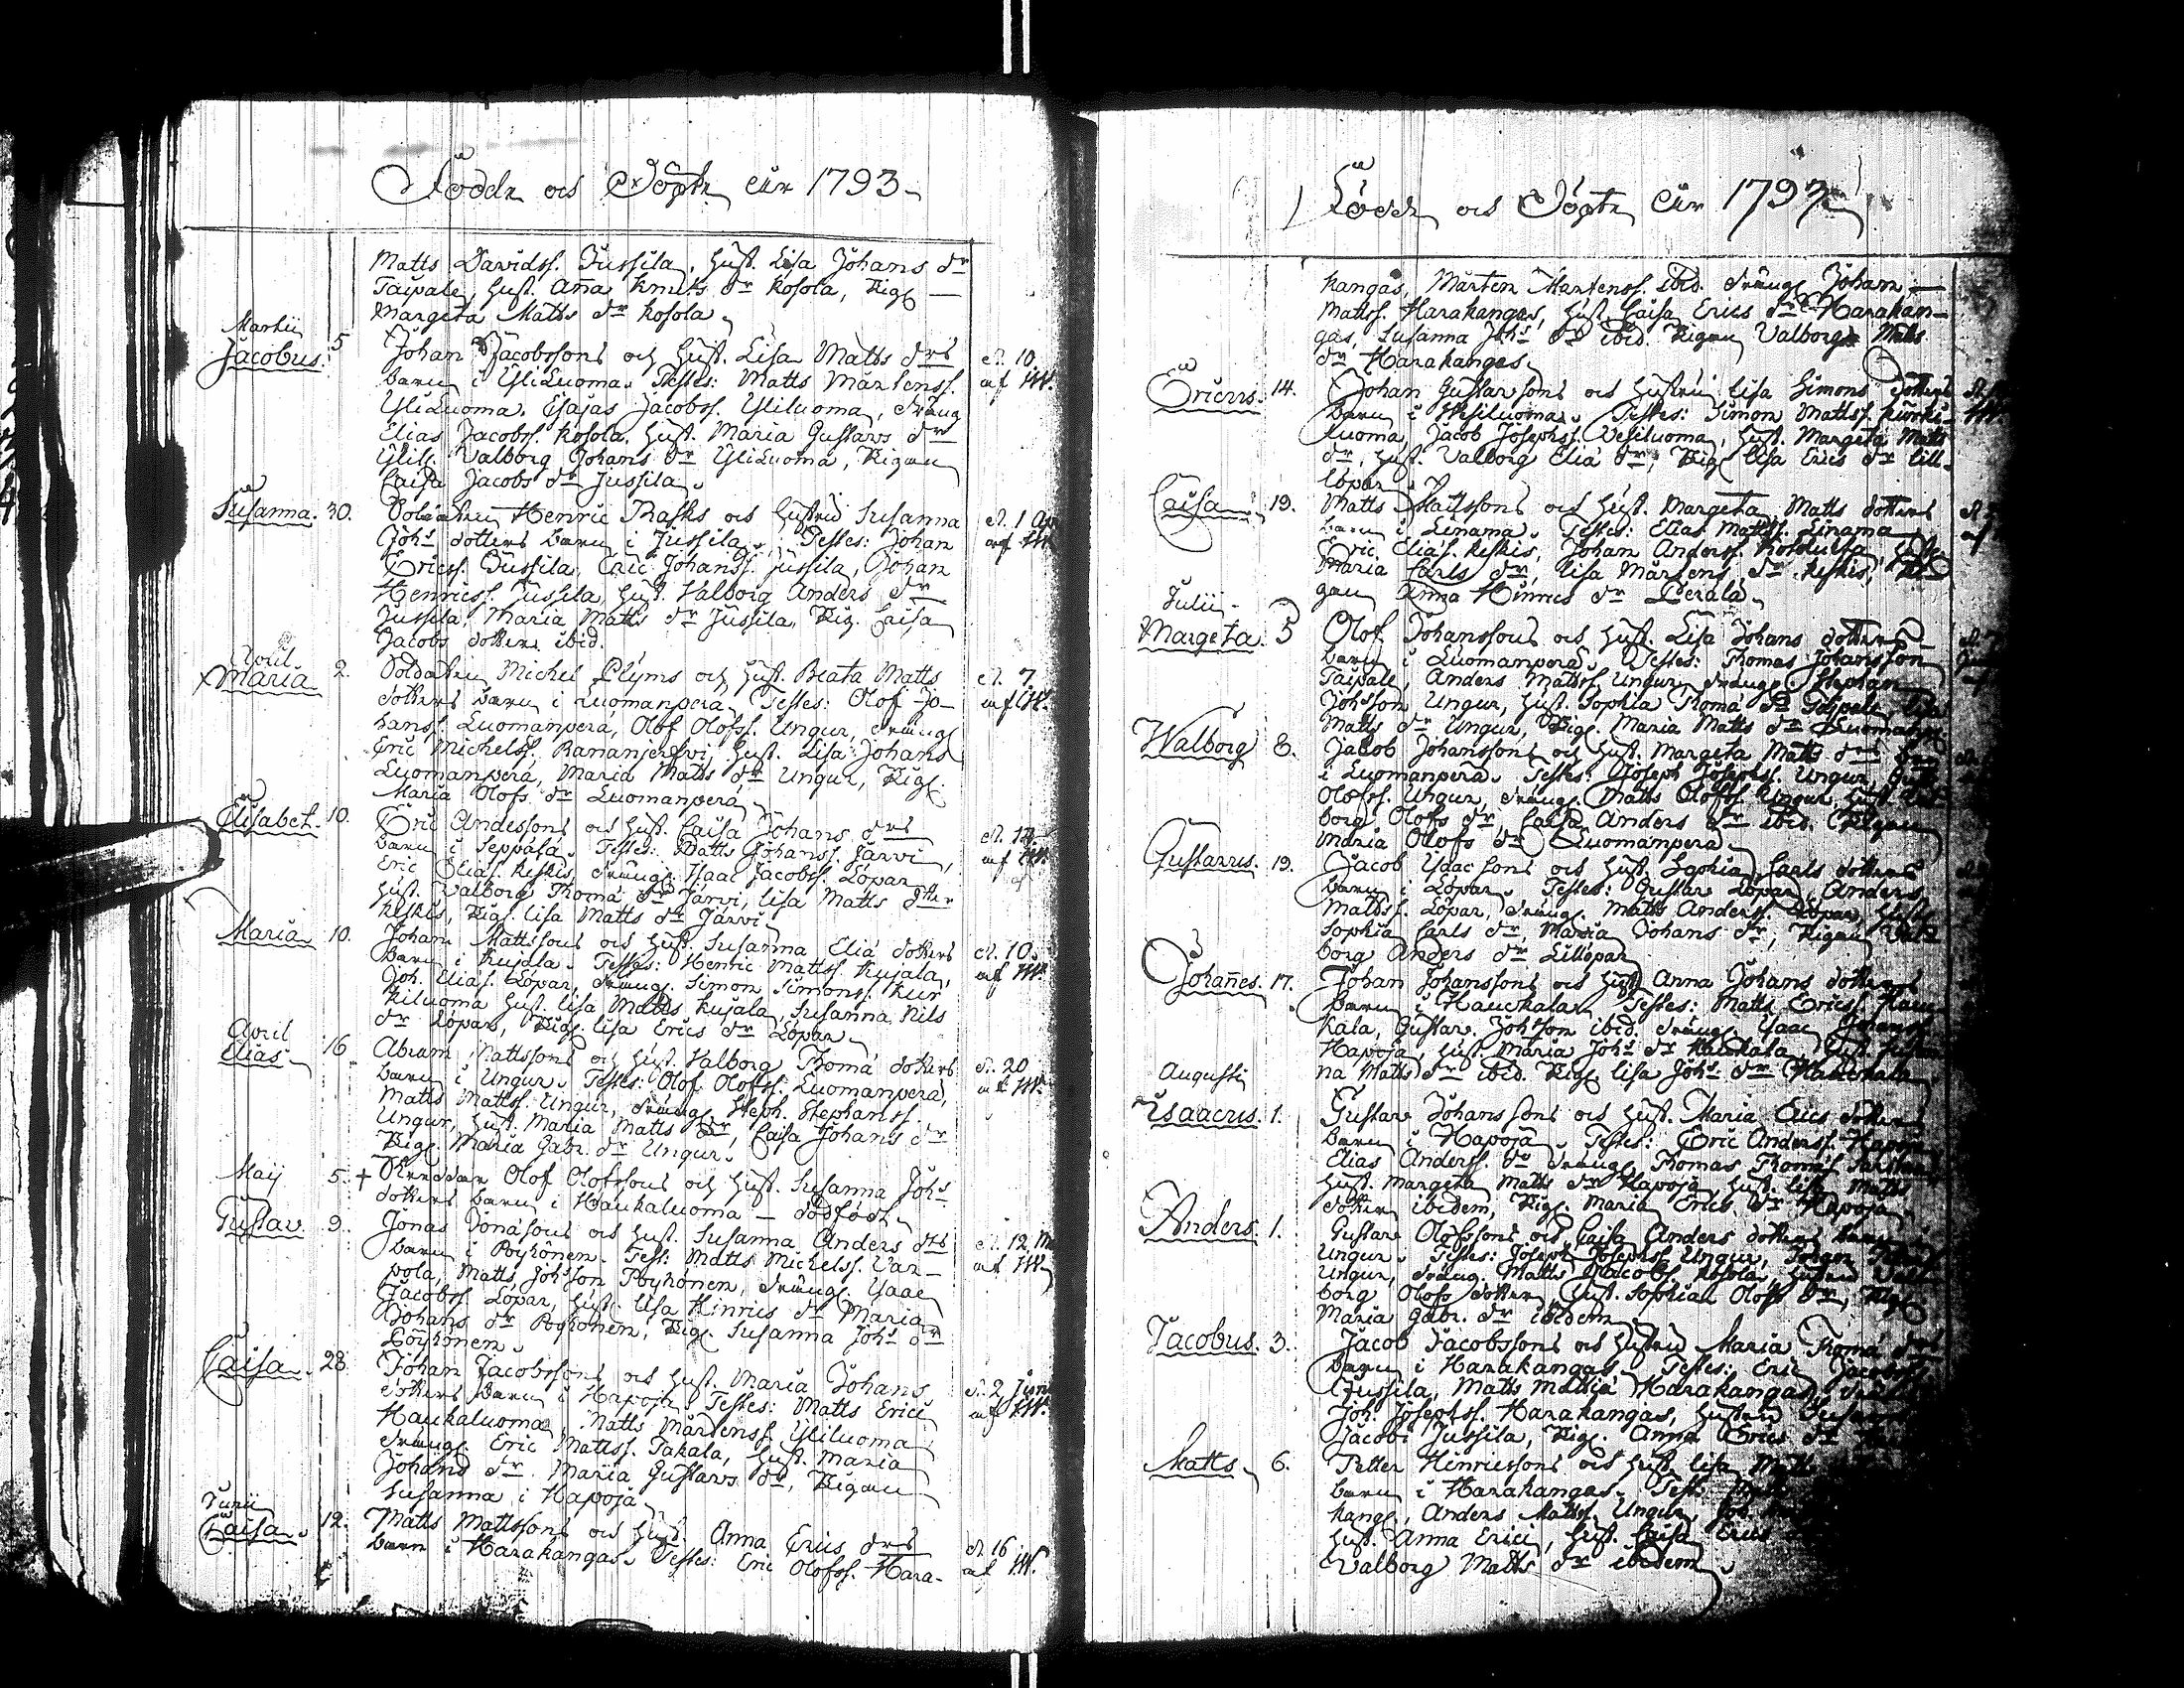 Födde och Döpte åår 1793
Matts Davidss. Jussila, hust. Lisa Johans dr
Taipale, hust. Aña Knuts dr Kosola, Pig.
Margeta Matts dr Kosola
Martii
Jacobus. 5 Johan Jacobssons och hust. Lisa Matts drs d. 10.
barn i Yliluoma. Testes: Matts Mårtenss. af W.
Yliluoma. Esajas Jacobss. Yliluoma, dräng
Elias Jacobss. Kosola, hust. Maria Gustavs dr
Ylil. Valborg Johans dr Yliluoma, Pigan
Caisa Jacobs dr Jussila.
Susanna. 30. Soldaten Henric Rasks och hustru Susanna d. 1 Ap
Johs dotters barn i Jussila. Testes: Johan af W
Ericss. Jussila, Johanss. Jussila, Johan
Henricss. Jussila, hust. Valborg Anders dr
Jussila, Maria Matts dr Jussila, Pig. Caisa
Jacobs dotter ibid.
April
Maria 2. Soldaten Michel Plyms och hust. Beata Matts d. 7.
dotters barn i Luomanperä. Testes: Olof Jo- af W.
hanss. Luomanperä, Olof Olofss. Ungur, dräng
Eric Michelss. hust. Lisa Johans
Luomanperä, Maria Matts dr Ungur, Pig.
Maria Olofs dr Luomanperä
Elisabet. 10. Eric Anderssons och hust. Caisa Johans drs d. 14
barn i Seppälä. Testes: Matts Johanss. Järvi, af W.
Eric Eliæss. Keskis, dräng. Isaac Jacobss. Löpar
hust. Valborg Thomæ dr Järvi, Lisa Matts dtter
Keskis, Pig. Lisa Matts dr Järvi
Maria 10. Johan Mattssons och hust. Susanna Eliæ dotters d. 10.
barn i Kujala. Testes: Henric Mattss. Kujala, af W.
Joh. Eliæss. Löpar, dräng. Simon Simonss. Kur
kiluoma hust. Lisa Matts Kujala, Susanna Nils
dr Löpar, Pig. Lisa Erics dr Löpar
April
Elias 16 Abram Mattssons och hust. Valborg Thomæ dotters d. 20
barn i Ungur. Testes: Olof Olofss. Luomanperä, af W.
Matts Mattss. Ungur, dräng Steph. Stephanss.
Ungur, hust. Maria Matts dr, Caisa Johans dr
Pig. Maria Gabr. dr Ungur.
Maij 5. + Olof Olofssons och hust. Susanna Johs
dotters barn i Haukaluoma — dödfödt
Gustav 9. Jonas Jonæsons och hust. Susanna Anders drs d. 12. M
barn i Pöyhönen. Test: Matts Michelss. Var- af W
pola, Matts Johsson Pöyhönen, dräng. Isaac
Jacobss. Löpar, hust. Lisa Hinrics dr Maria
Johans dr Pöyhönen, Pig. Susanna Johs dr
Pöyhönen.
Caisa 28 Johan Jacobssons och hust. Maria Johans d. 2 Juni
dotters barn i Hapoja. Testes: Matts Erici af W.
Haukaluoma, Matts Mårtenss. Yliluoma
dräng. Eric Mattss. Takala, hust. Maria
Johans dr Maria Gustavs dr, Pigan
Susanna i Hapoja
Junii
Caisa. 12. Matts Mattssons och hust. Anna Erics drs d. 16
barn i Harakangas. Testes: Eric Olofss. Hara- af W.
Födde och Döpte åår 1793
kangas, Mårten Mårtenss. ibid. dräng Johan
Mattss. Harakangas, hust. Caisa Erics dr Harakan-
gas, Susanna Johs dr ibid. Pigan Valborg Matts
dr Harakangas
Ericus. 14. Johan Gustavssons och hustru Lisa Simons dotters
barn i Vesiluoma. Testes: Simon Mattss. Kurki-
luoma, Jacob Josephss. Vesiluoma, hust. Margeta Matts
dr, hust. Valborg Eliæ dr, Pig. Lisa Erics dr Lill-
löpar
Caisa 19. Matts Mattssons och hust. Margeta Matts dotters
barn i Linama. Testes: Elias Mattss. Linama
Eric Eliæss. Keskis, Johan Anderss.
Maria Carls dr, Lisa Mårtens dr Keskis, Pi
gan Anna Hinrics dr Perälä
Julii
Margeta. 5 Olof Johanssons och hust. Lisa Johans dotters
barn i Luomanperä. Testes: Thomas Johansson
Taipale, Anders Mattss. Ungur, dräng Stephan
Johsson Ungur, hust. Sophia Thomæ dr Taipale,
Matts dr Ungur, Pig. Maria Matts dr Luomanp.
Walborg 8. Jacob Johanssons och hust. Margeta Matts drs barn
i Luomanperä. Testes: Joseph Josephss. Ungur,
Olofss. Ungur, dräng. Matts Olofss. Ungur, hust. Val-
borg Olofs dr Caisa Anders dr ibid. Pigan
Maria Olofs dr Luomanperä
Gustavus. 19. Jacob Isacsons och hust. Sophia Carls dotters
barn i Löpar. Testes: Gustav Löpar, Anders
Mattss. Löpar, dräng. Matts Anderss. Löpar, hust.
Sophia Carls dr, Maria Johans dr, Pigan Val-
borg Anders dr Lillöpar
Johañes. 17. Johan Johanssons och hust. Anna Johans dotters
barn i Hauckala. Testes: Matts Ericss. Hau
kala, Gustav Johsson ibid. dräng. Isaac Johanss.
Hapoja, hust. Maria Johs dr Hauckala, hust. Susan
na Matts dr ibid. Pig. Lisa Johs dr Hauckala
Augusti
Isaacus. 1. Gustav Johanssons och hust. Maria Erics dotters
barn i Hapoja. Testes: Eric Anderss. Hapoja
Elias Anderss. do dräng Thomas Thomæss.
hust. Margeta Matts dr Hapoja, hust. Lisa Matts
dotter ibidem, Pig. Maria Erics dr Hapoja.
Anders. 1. Gustav Olofssons och Caisa Anders dotters barn i
Ungur. Testes: Joseph Josephss. Ungur, Johan
Ungur, dräng. Matts Jacobss. Kosola, hustru Val-
borg Olofs dotter, hust. Sophia Olofs dr, Pig.
Maria Gabr. dr ibidem
Jacobus. 3. Jacob Jacobssons och hustru Maria Thomæ drs
barn i Harakangas. Testes: Eric Jacobss.
Jussila, Matts Mattiæ Harakangas, dräng
Joh. Josephss. Harakangas, hustru Susanna
Jacobi Jussila, Pig. Anna Erics dr
Matts 6. Petter Hinricssons och hust. Lisa Matts
barn i Harakangas. Test:
kang., Anders Mattss. Ungur, Joh.
hust. Anna Erici, hust. Caisa Erics
Valborg Matts dr ibidem